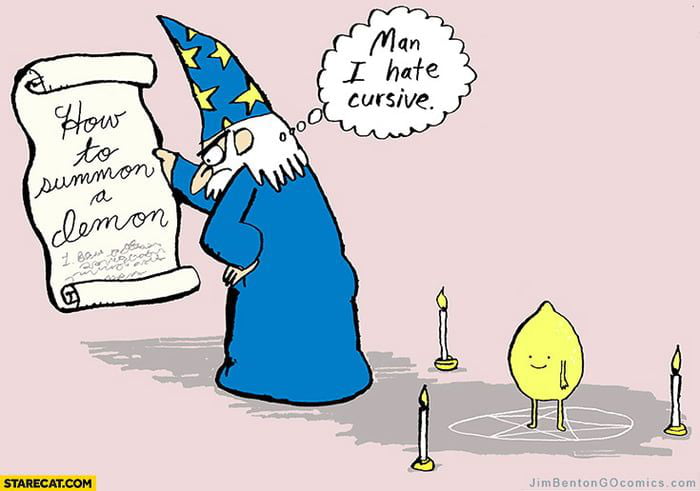 How
to
summon
a
demon
1. Draw
Man
I hate
cursive.
STARECAT.COM
JimBentonGOcomics.com